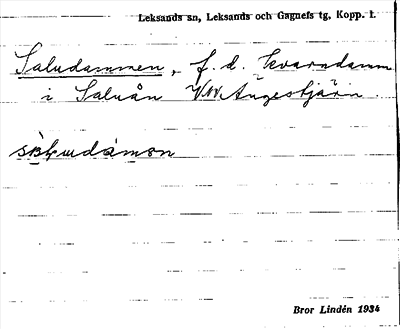 Leksands sn, Leksands och Gagnefs tg, Kopp. l.
Saludammen, f. d. kvarndamm
i Saluån VNV Ångestjärn.
Bror Lindén 1934